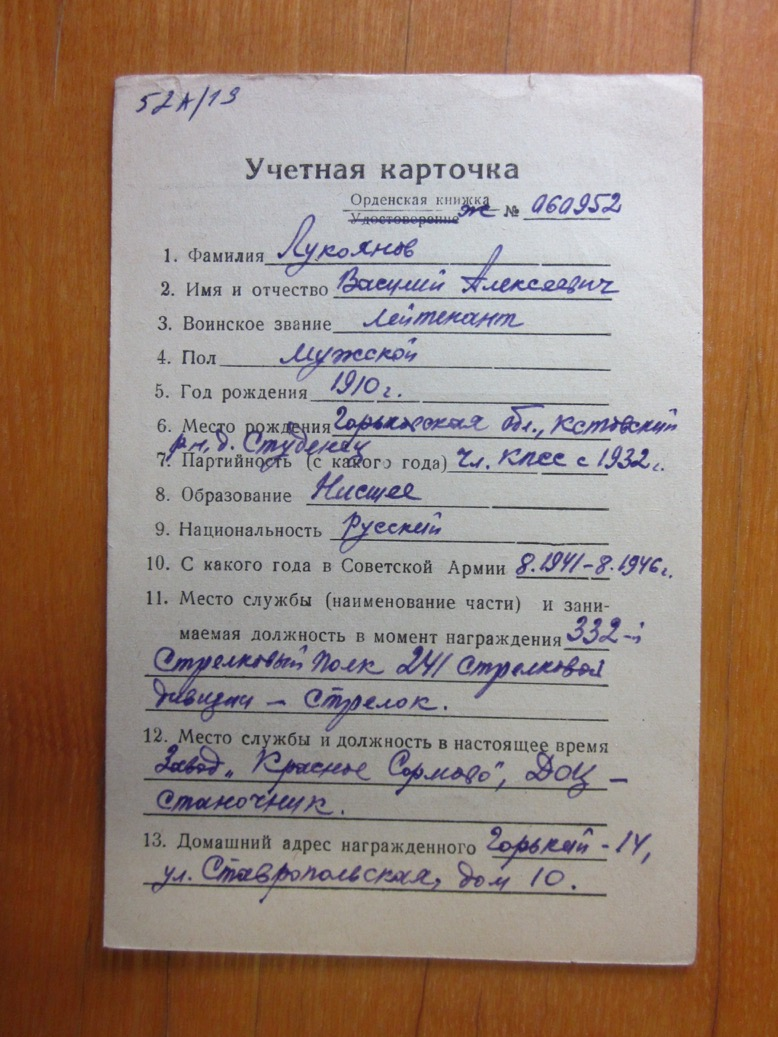 52А/13
Учетная карточка
Орденская книжка
Удостоверение ж № 060952
1. Фамилия Лукоянов
2. Имя и отчество Василий Алексеевич
3. Воинское звание Лейтенант
4. Пол Мужской
5. Год рождения 1910 г.
6. Место рождения Горьковская обл., Кстовский
р-н, д. Студенец
7. Партийность (с какого года) чл. КПСС с 1932 г.
8. Образование Нисшее
9. Национальность Русский
10. С какого года в Советской Армии 8.1941-8.1946г.
11. Место службы (наименование части) и зани-
маемая должность в момент награждения 332-й
Стрелковый Полк 241 Стрелковой
дивизии – Стрелок.
12. Место службы и должность в настоящее время
Завод „Красное Сормово", ДОЦ –
Станочник.
13. Домашний адрес награжденного Горький-14,
ул. Ставропольская, дом 10.